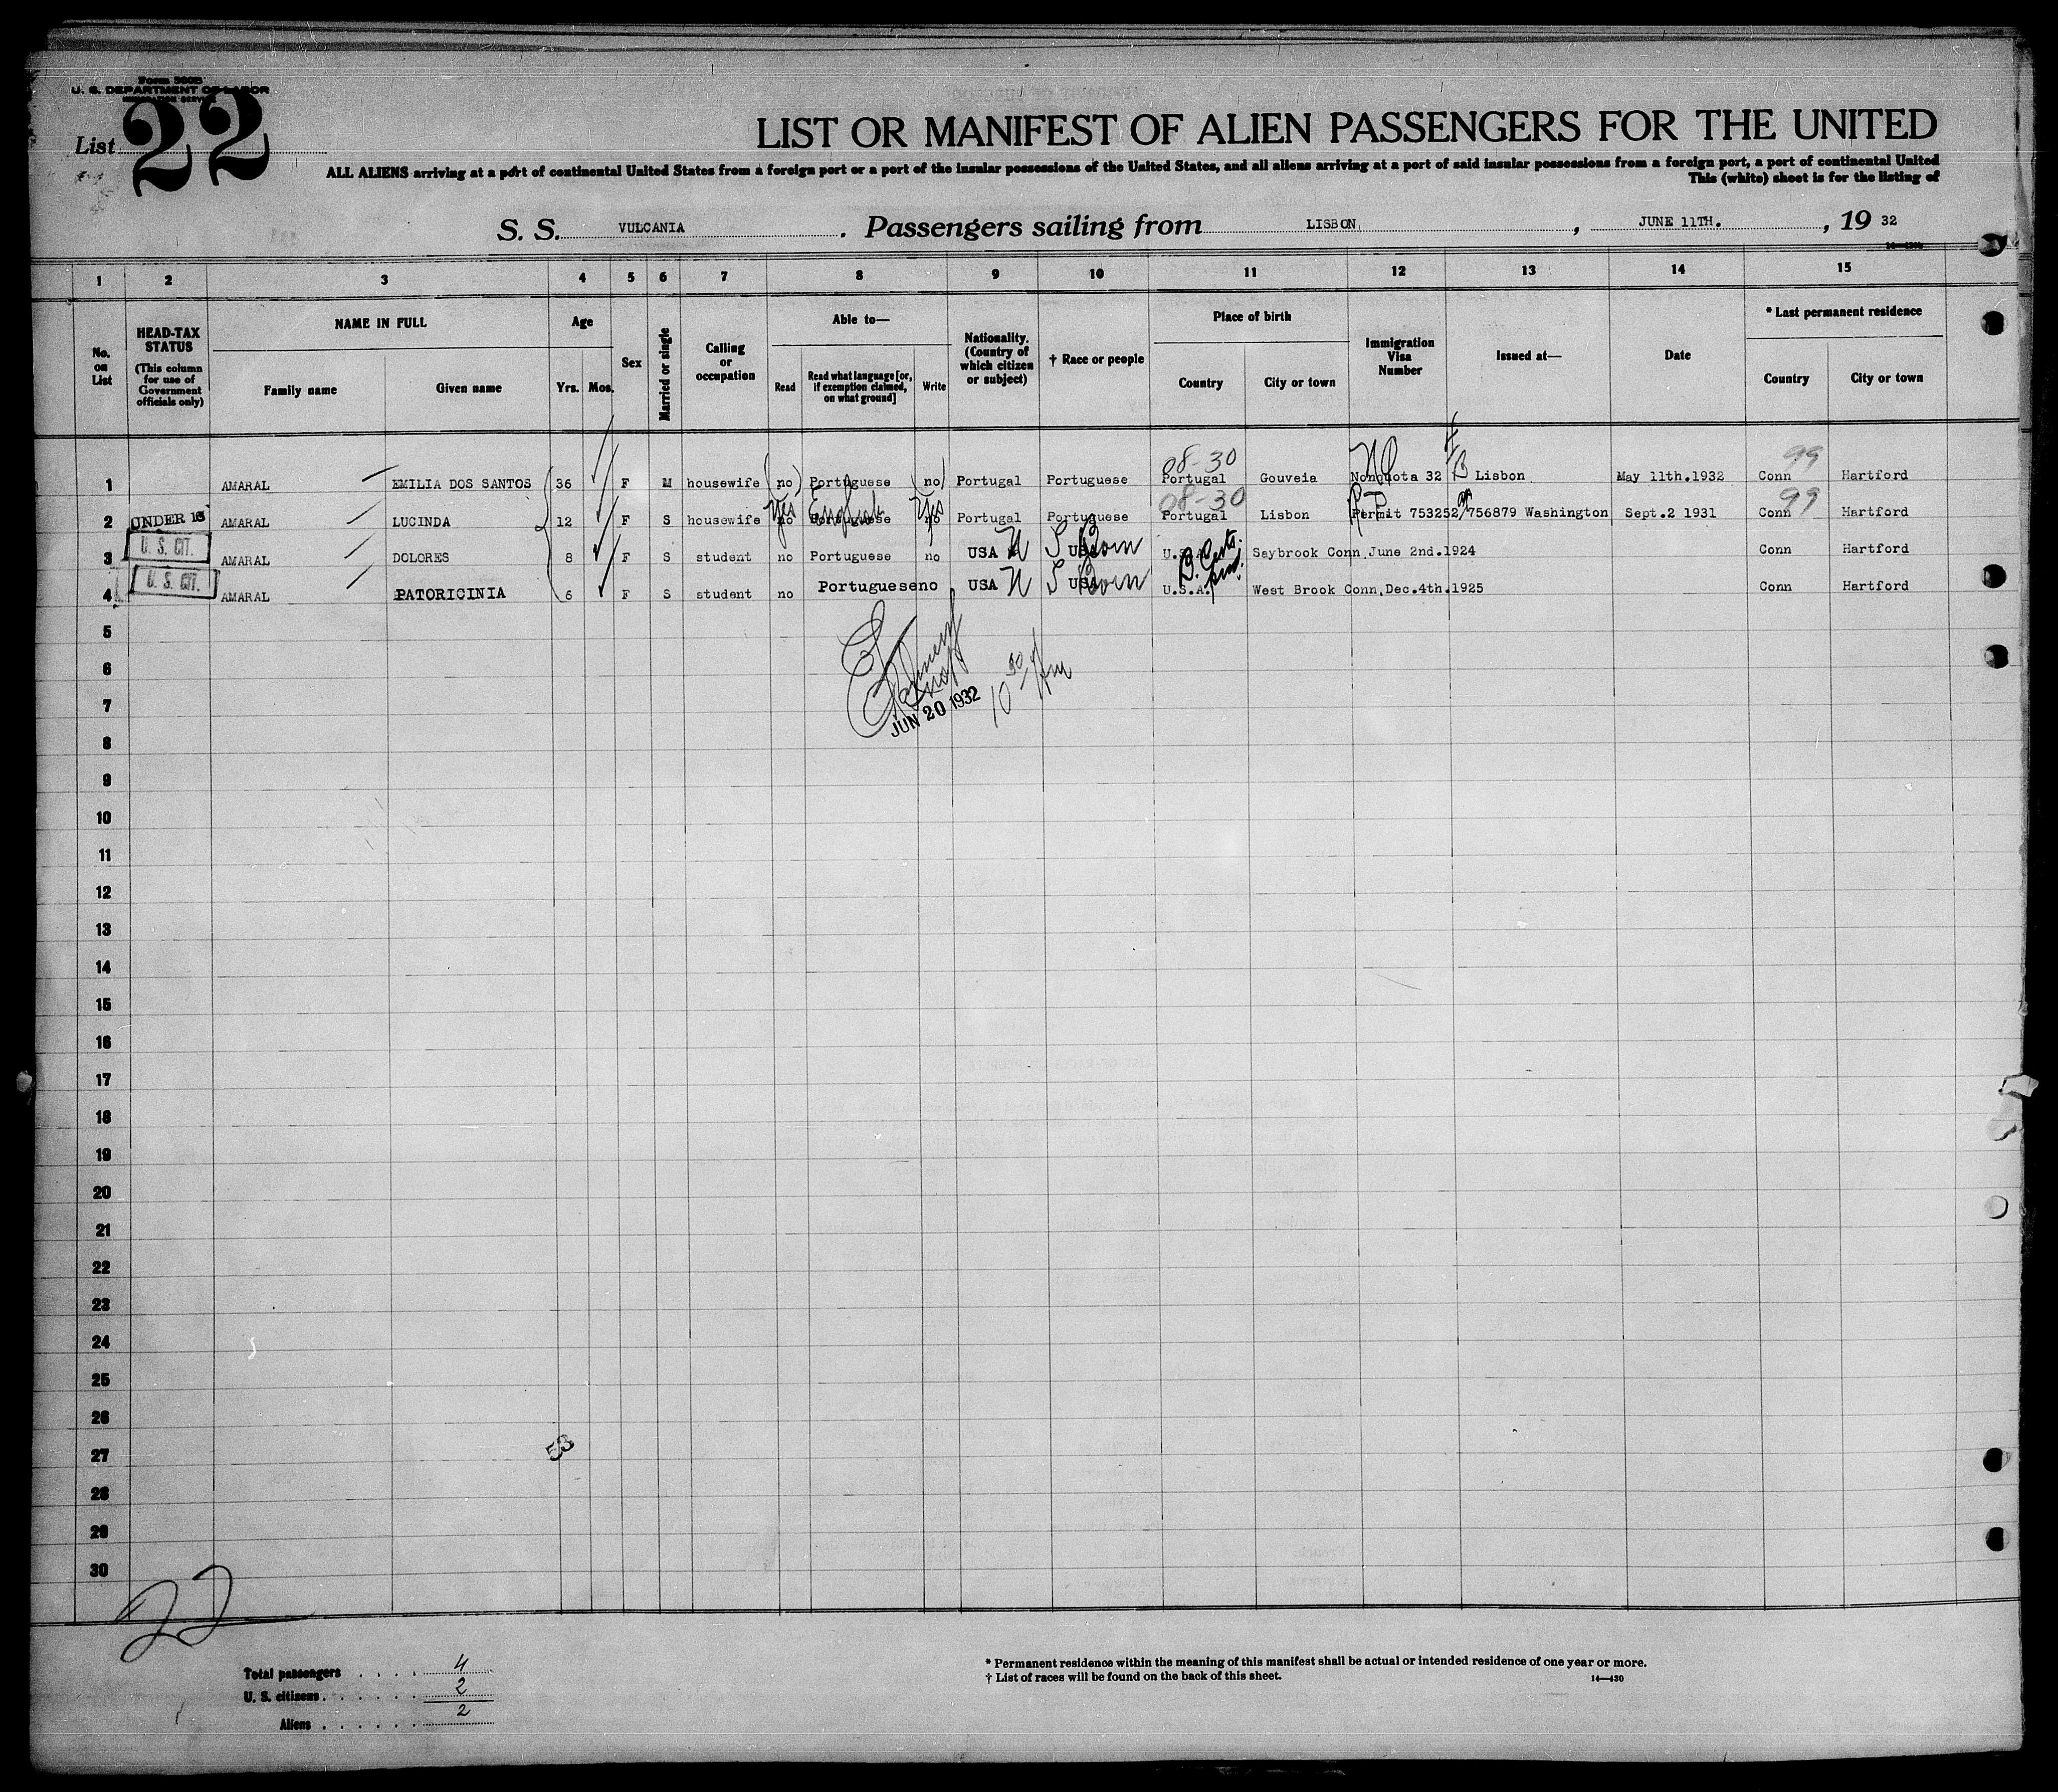 Form 500B
U. S. DEPARTMENT OF LABOR
IMMIGRATION SERVICE
List 22
LIST OR MANIFEST OF ALIEN PASSENGERS FOR THE UNITED
ALL ALIENS arriving at a port of continental United States from a foreign port or a port of the insular possessions of the United States, and all aliens arriving at a port of said insular possessions from a foreign port, a port of continental United
This (white) sheet is for the listing of
S. S. VULCANIA . Passengers sailing from LISBON , JUNE 11TH. , 19 32
1 2 3 4 5 6 7 8 9 10 11 12 13 14 15
No. on List
HEAD-TAX STATUS (This column for use of Government officials only)
NAME IN FULL
Family name Given name
Age
Yrs. Mos.
Sex
Married or single
Calling or occupation
Able to—
Read Read what language [or, if exemption claimed, on what ground] Write
Nationality. (Country of which citizen or subject)
† Race or people
Place of birth
Country City or town
Immigration Visa Number
Issued at—
Date
* Last permanent residence
Country City or town
08-30 99
1 AMARAL EMILIA DOS SANTOS 36 F M housewife no Portuguese no Portugal Portuguese Portugal Gouveia Nonquota 32 Lisbon May 11th.1932 Conn Hartford
Yes English Yes 08-30 R.P. 99
2 UNDER 16 AMARAL LUCINDA 12 F S housewife no Portuguese no Portugal Portuguese Portugal Lisbon Permit 753252/756879 Washington Sept.2 1931 Conn Hartford
3 U. S. CIT. AMARAL DOLORES 8 F S student no Portuguese no USA N USA Born U.S.A. Saybrook Conn June 2nd.1924 Conn Hartford
4 U. S. CIT. AMARAL PATORICINIA 6 F S student no Portuguese no USA N USA Born U.S.A. West Brook Conn,Dec.4th.1925 Conn Hartford
5
6
7
JUN 20 1932
8
9
10
11
12
13
14
15
16
17
18
19
20
21
22
23
24
25
26
27 53
28
29
30
22
Total passengers . . . . 4
U. S. citizens . . . . . . 2
Aliens . . . . . . 2
* Permanent residence within the meaning of this manifest shall be actual or intended residence of one year or more.
† List of races will be found on the back of this sheet. 14—430